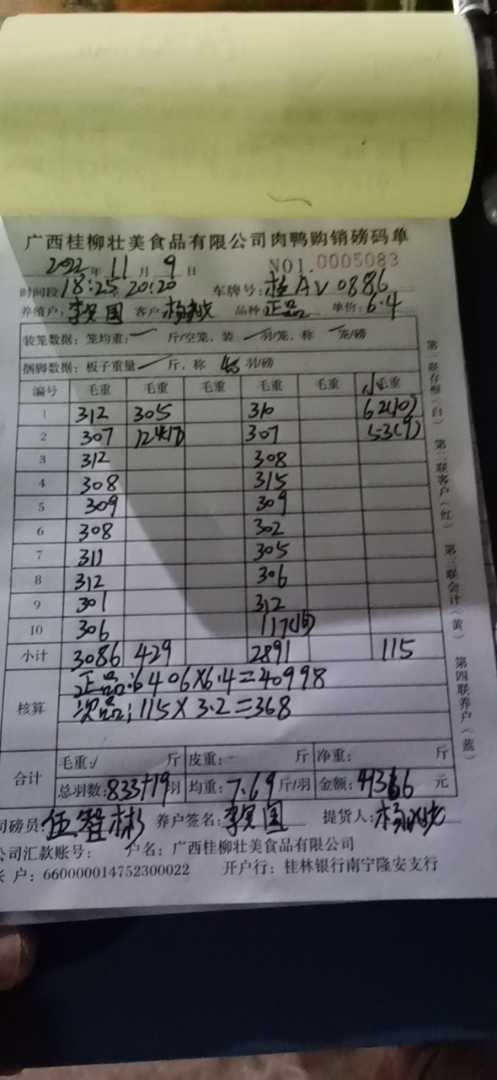 广西桂柳壮美食品有限公司肉鸭购销磅码单
2022年11月9日 NO1.0005083
时间段:18:25 20:20 车牌号:桂AV0886
养殖户: 国 客户: 杨 品种:正品 单价:6.4
装笼数据:笼均重:一 斤/空笼,装一羽/笼,称 笼/磅
捆脚数据:板子重量一斤,称 羽/磅
编号 毛重 毛重 毛重 毛重 毛重 毛重
1 312 305 310 62(10)
2 307 124(17) 307 53(9)
3 312 308
4 308 315
5 309 309
6 308 302
7 311 305
8 312 306
9 301 312
10 306 117(16)
小计 3086 429 2891 115
核算 正品:6406×6.4=40998
次品:115×3.2=368
合计 毛重:/ 斤 皮重:- 斤 净重: 斤
总羽数:833+19羽 均重:7.69斤/羽 金额:41366元
司磅员:伍 彬 养户签名: 国 提货人:杨
公司汇款账号: 户名:广西桂柳壮美食品有限公司
户:660000014752300022 开户行:桂林银行南宁隆安支行
第一联存根(白) 第二联客户(红) 第三联会计(黄) 第四联养户(蓝)